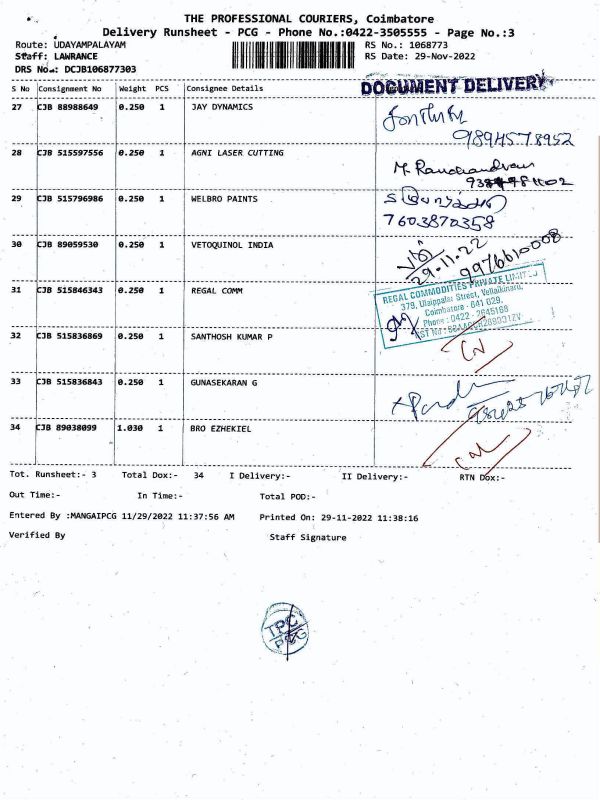 THE PROFESSIONAL COURIERS, Coimbatore
Delivery Runsheet - PCG - Phone No.:0422-3505555 - Page No.:3
Route: UDAYAMPALAYAM RS No.: 1068773
Staff: LAWRANCE RS Date: 29-Nov-2022
DRS No.: DCJB106877303
DOCUMENT DELIVERY
S No Consignment No Weight PCS Consignee Details
27 CJB 88988649 0.250 1 JAY DYNAMICS
9894578952
28 CJB 515597556 0.250 1 AGNI LASER CUTTING
29 CJB 515796986 0.250 1 WELBRO PAINTS
7603870358
30 CJB 89059530 0.250 1 VETOQUINOL INDIA
29.11.22
9976610008
31 CJB 515846343 0.250 1 REGAL COMM
REGAL COMMODITIES PRIVATE LIMITED
379, Ulaippalar Street, Vellaikinaru,
Coimbatore - 641 029.
Phone : 0422 - 2645168
32 CJB 515836869 0.250 1 SANTHOSH KUMAR P
33 CJB 515836843 0.250 1 GUNASEKARAN G
34 CJB 89038099 1.030 1 BRO EZHEKIEL
Tot. Runsheet:- 3 Total Dox:- 34 I Delivery:- II Delivery:- RTN Dox:-
Out Time:- In Time:- Total POD:-
Entered By :MANGAIPCG 11/29/2022 11:37:56 AM Printed On: 29-11-2022 11:38:16
Verified By Staff Signature
TPC
PCG